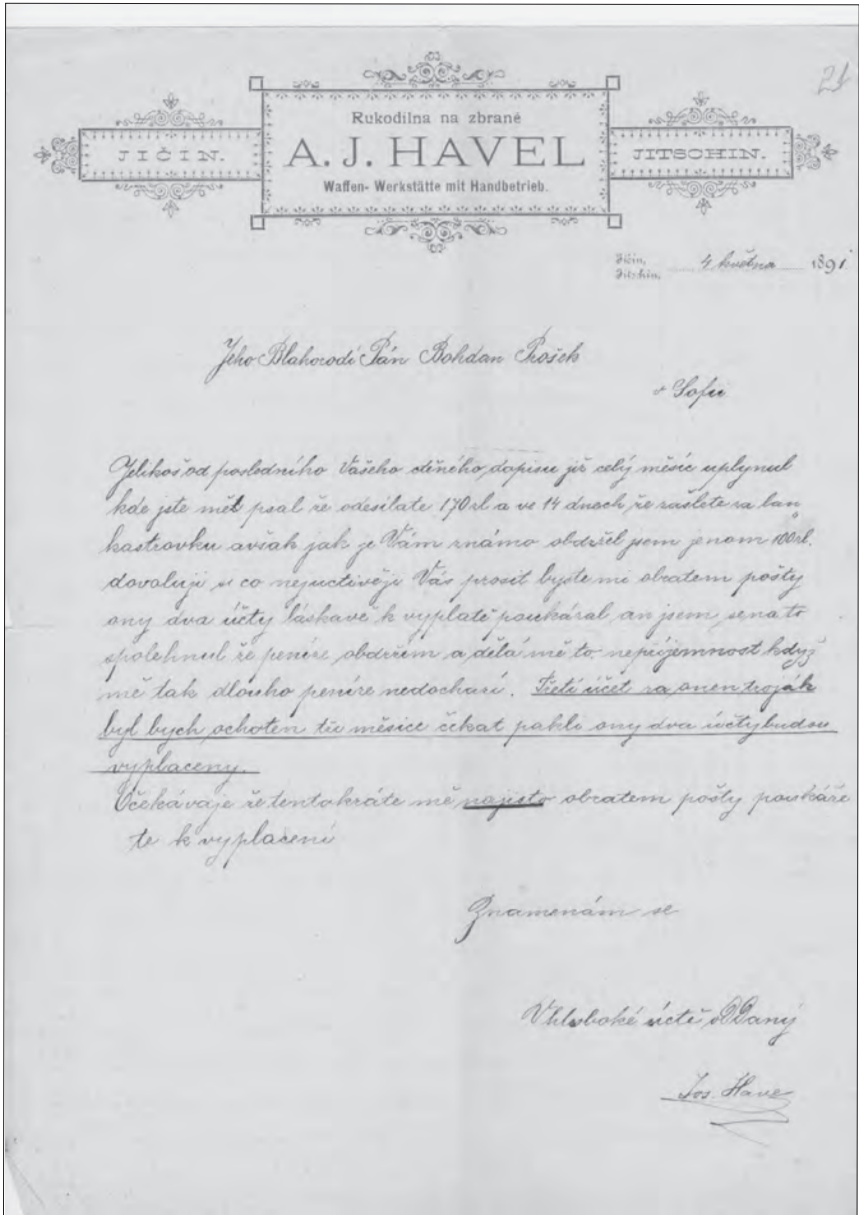 21
Rukodilna na zbraně
JIČIN. A. J. HAVEL JITSCHIN.
Waffen- Werkstätte mit Handbetrieb.
Jičin, Jitschin, 4 května 1891
Jeho Blahorodí Pán Bohdan Prošek
v Sofii
Jelikož od posledního Vašeho ctěného dopisu již celý měsíc uplynul
kde jste mě psal že odesíláte 170 zl a ve 14 dnech že zašlete za lan
kastrovku avšak jak je Vám známo obdržel jsem jenom 100 zl.
dovoluji si co nejuctivěji Vás prosit byste mi obratem pošty
ony dva účty láskavě k vyplatě poukázal, an jsem se na to
spolehnul že peníze obdržím a dělá mě to nepříjemnost když
mě tak dlouho peníze nedochází. Třetí účet za onen troják
byl bych ochoten tři měsíce čekat pakli ony dva účty budou
vyplaceny.
Očekávaje že tentokráte mě najisto obratem pošty poukáže
te k vyplacení
Znamenám se
V hluboké úctě oddaný
Jos. Havel